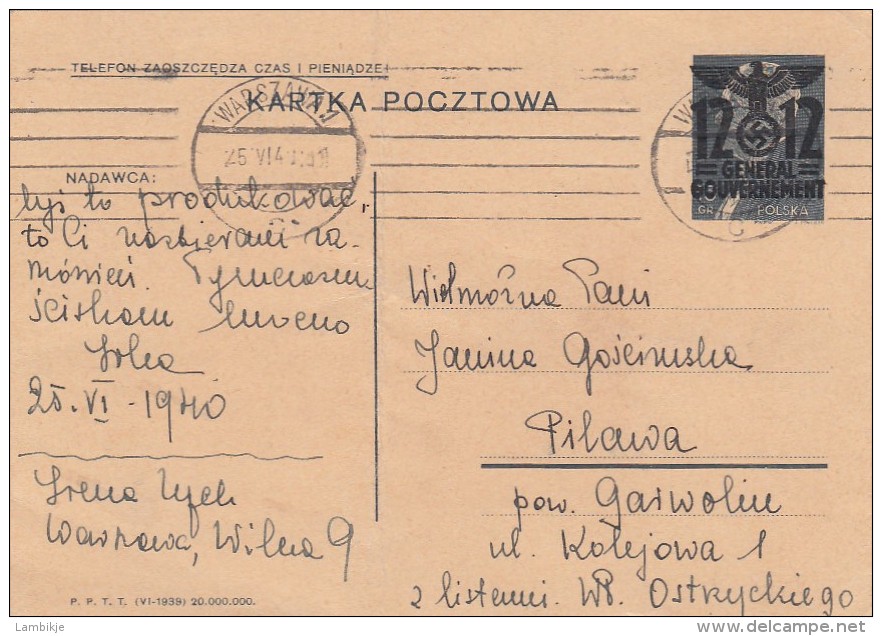 TELEFON ZAOSZCZĘDZA CZAS I PIENIĄDZE!
KARTKA POCZTOWA
WARSZAWA 1
25 VI 4
12 12
GENERAL
GOUVERNEMENT
GR POLSKA
C
NADAWCA:
to produkować,
to Ci nazbieram za-
mówień. Tymczasem
ściskam mocno
Irka
25.VI-1940
Irena
Warszawa, Wilcza 9
Wielmożna Pani
Janina Gościmska
Pilawa
pow. Garwolin
ul. Kolejowa 1
z listemi. Wł. Ostrzyckiego
P. P. T. T. (VI-1939) 20.000.000.
Lambikje
delcampe.net